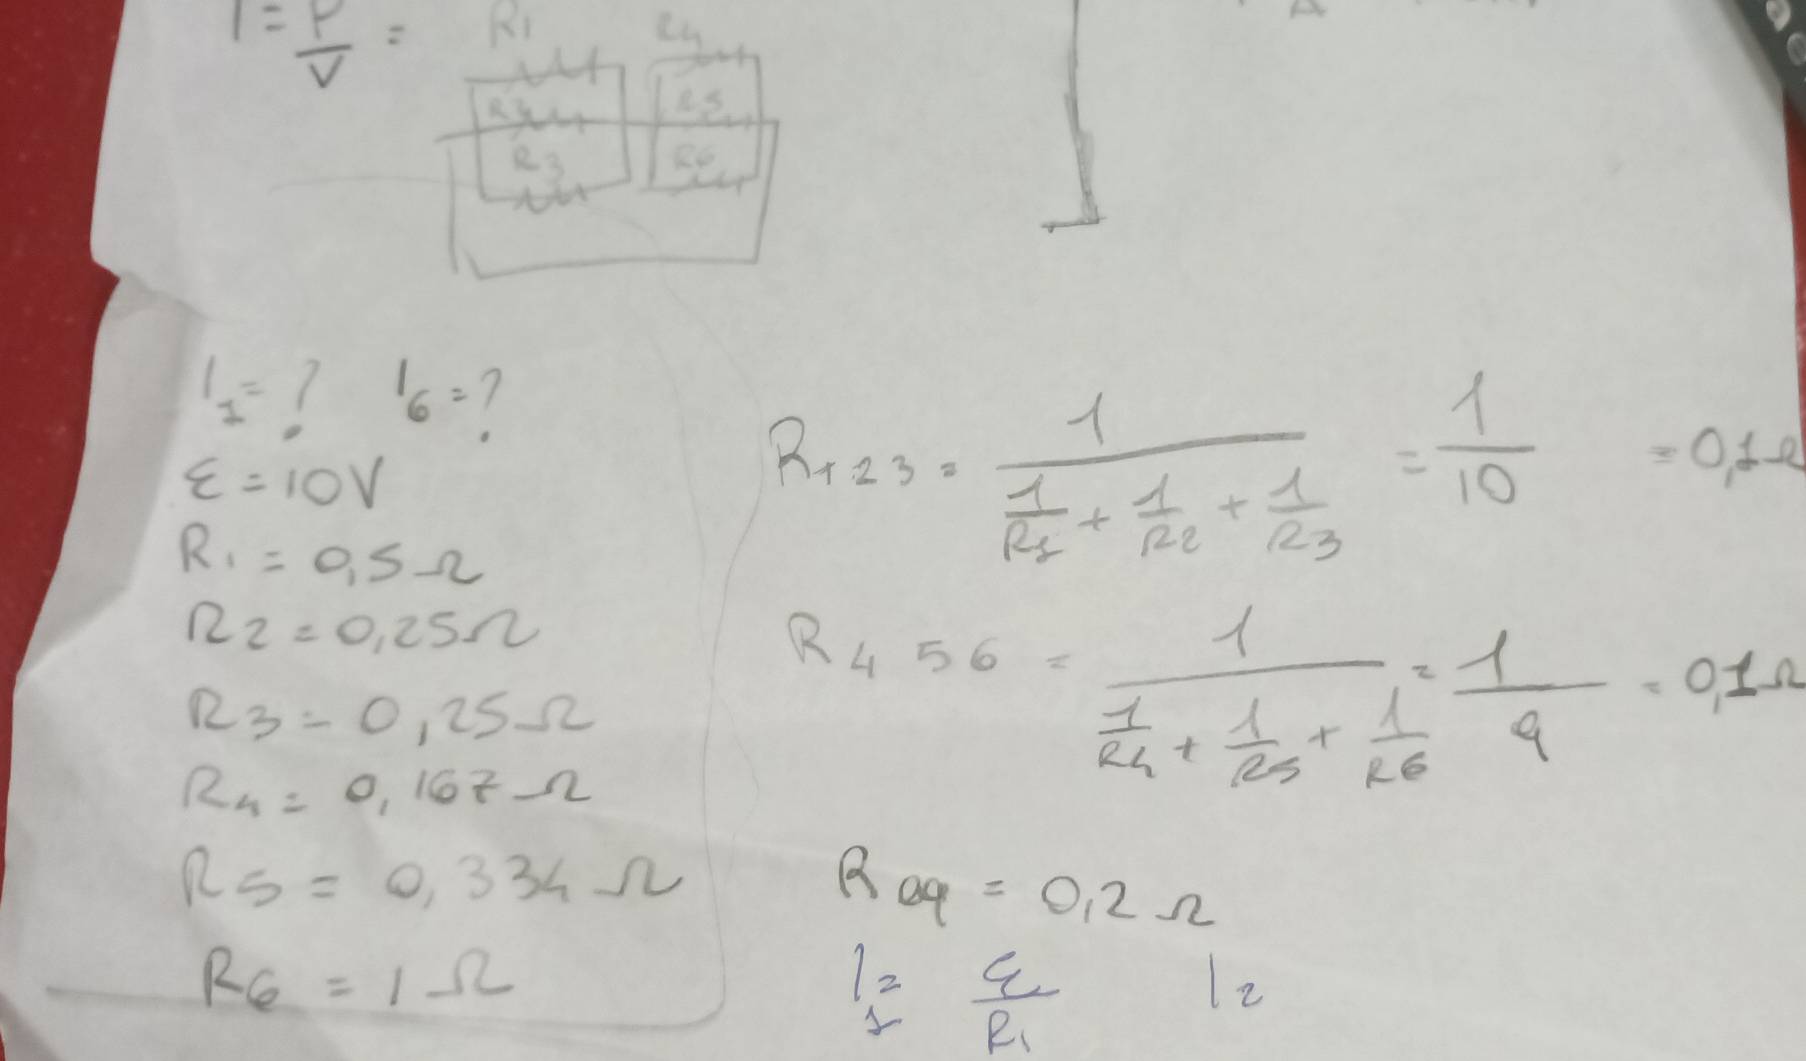 I = P/V =
R1 R4
R2 R5
R3 R6
I1 = ? I6 = ?
ε = 10V
R1 = 0,5 Ω
R2 = 0,25 Ω
R3 = 0,25 Ω
R4 = 0,167 Ω
R5 = 0,334 Ω
R6 = 1 Ω
R123 = 1/(1/R1 + 1/R2 + 1/R3) = 1/10 = 0,1 Ω
R4 56 = 1/(1/R4 + 1/R5 + 1/R6) = 1/9 = 0,1 Ω
Req = 0,2 Ω
I1 = ε/R1 I2